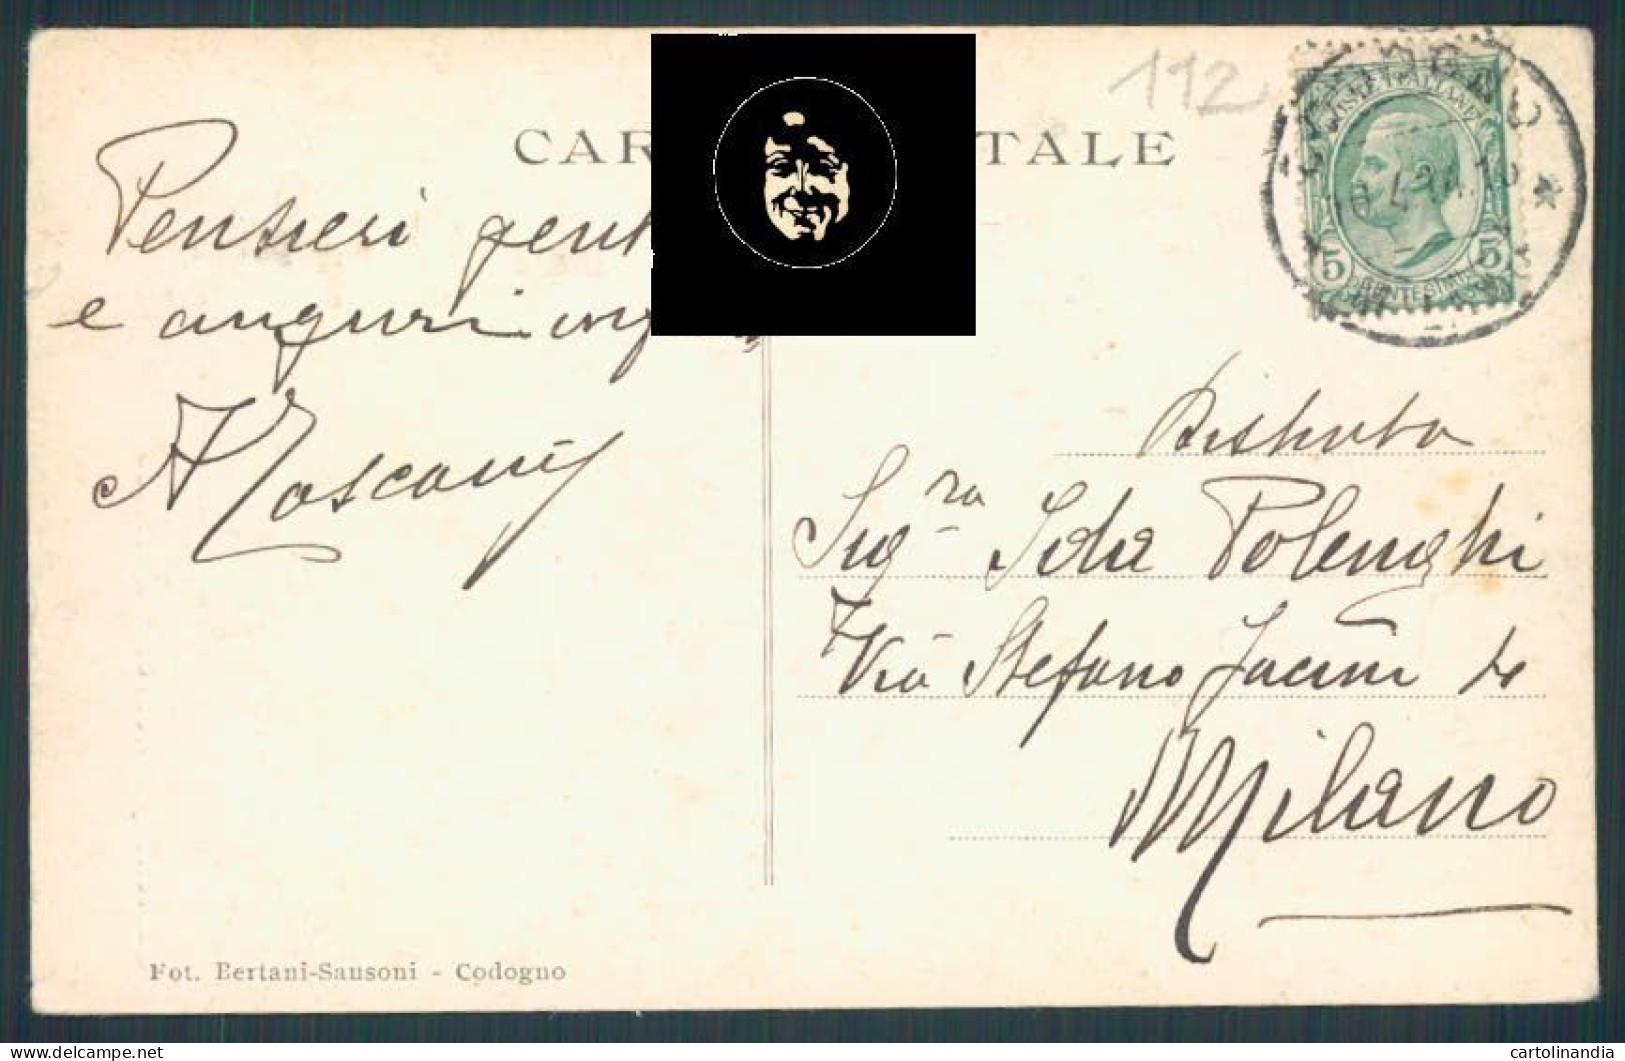 112
CAR TALE
POSTE ITALIANE
5 CENTESIMI 5
Pensieri gent
e auguri
A Toscani
Distinta
Sig.ra Ida Polenghi
Via Stefano Jacini 4
Milano
Fot. Bertani-Sansoni - Codogno
cartolinandia